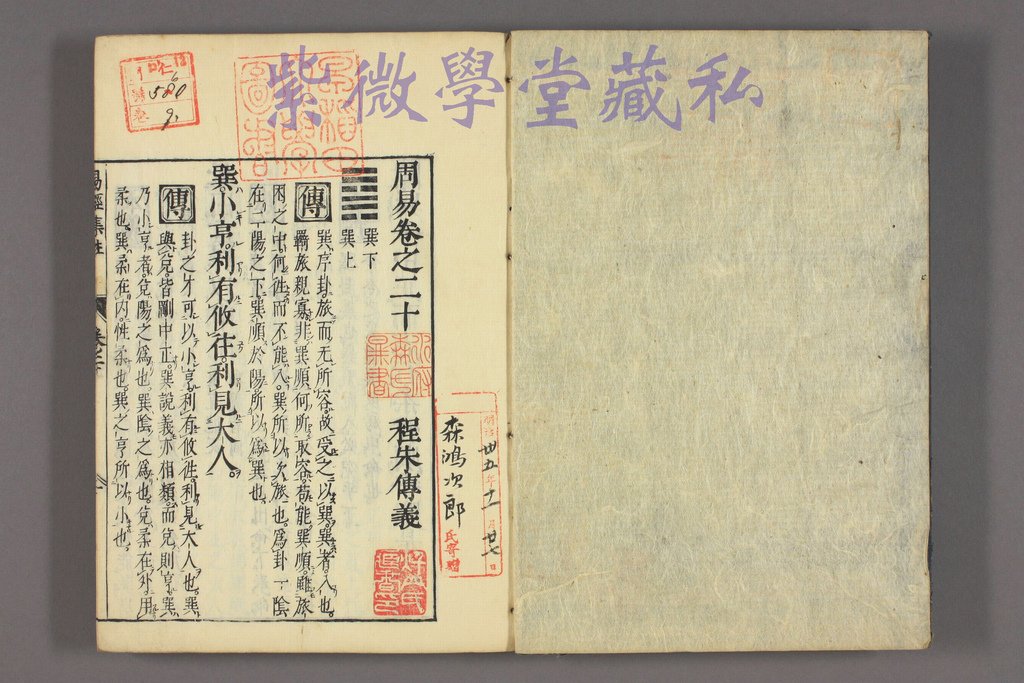 紫微學堂藏私
周易卷之二十
程朱傳義
巽下
巽上
傳
巽序卦旅而无所容故受之以巽巽者入也
羈旅親寡非巽順何所取容苟能巽順雖旅
困之中何往而不能入巽所以次旅也爲卦一陰
在二陽之下巽順於陽所以爲巽也
巽小亨利有攸往利見大人
傳
卦之才可以小亨利有攸往利見大人也巽
與兌皆剛中正巽說義亦相類而兌則亨巽
乃小亨者兌陽之爲也巽陰之爲也兌柔在外用
柔也巽柔在内性柔也巽之亨所以小也
易經集註
森鴻次郎
氏寄贈
明治卅五年 月廿七日
580